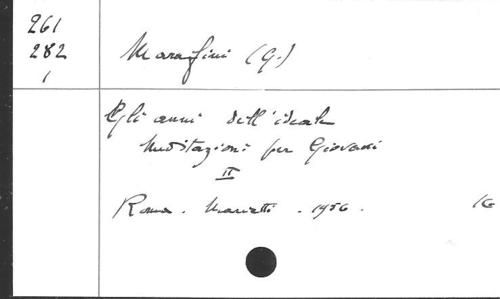 261
282
1
Marafini (G.)
Gli anni dell'ideale
Meditazioni per Giovani
II
Roma. Marietti. 1956.